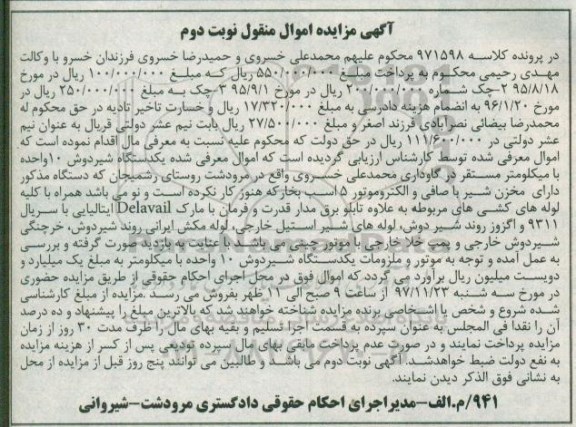 آگهی مزایده اموال منقول نوبت دوم
در پرونده کلاسه ۹۷۱۵۹۸ محکوم علیهم محمدعلی خسروی و حمیدرضا خسروی فرزندان خسرو با وکالت
مهدی رحیمی محکوم به پرداخت مبلغ ۵۵۰/۰۰۰/۰۰۰ ریال که مبلغ ۱۰۰/۰۰۰/۰۰۰ ریال در مورخ
۹۵/۸/۱۸ ۲-چک شماره ۲۰۰/۰۰۰/۰۰۰ ریال در مورخ ۹۵/۹/۱ ۳-چک به مبلغ ۲۵۰/۰۰۰/۰۰۰ ریال در
مورخ ۹۶/۱/۲۰ به انضمام هزینه دادرسی به مبلغ ۱۷/۳۲۰/۰۰۰ ریال و خسارت تاخیر تادیه در حق محکوم له
محمدرضا بیضائی نصرآبادی فرزند اصغر و مبلغ ۲۷/۵۰۰/۰۰۰ ریال بابت نیم عشر دولتی قریال به عنوان نیم
عشر دولتی در ۱۱۱/۶۰۰/۰۰۰ در حق دولت که محکوم علیه نسبت به معرفی مال اقدام نموده است که
اموال معرفی شده توسط کارشناس ارزیابی گردیده است که اموال معرفی شده یکدستگاه شیردوش ۱۰واحده
با میکلومتر مستقر در گاوداری محمدعلی خسروی واقع در مرودشت روستای رشمیجان که دستگاه مذکور
دارای مخزن شیر با صافی و الکتروموتور ۵ اسب بخارکه هنوز کار نکرده است و نو می باشد همراه با کلیه
لوله های کشی های مربوطه به علاوه تابلو برق مدار قدرت و فرمان با مارک Delavail ایتالیایی با سریال
۹۳۱۱ و اگزوز روند شیر دوش، لوله های شیر استیل خارجی، لوله مکش ایرانی روند شیردوش، خرچنگی
شیردوش خارجی و پمپ خلا خارجی با موتور چینی می باشد با عنایت به بازدید صورت گرفته و بررسی
به عمل آمده و توجه به موتور و ملزومات یکدستگاه شیردوش ۱۰ واحده با میکلومتر به مبلغ یک میلیارد و
دویست میلیون ریال برآورد می گردد که اموال فوق در محل اجرای احکام حقوقی از طریق مزایده حضوری
در مورخ سه شنبه ۹۷/۱۱/۲۳ از ساعت ۹ صبح الی ۱۱ ظهر بفروش می رسد .مزایده از مبلغ کارشناسی
شده شروع و شخص یا اشخاصی برنده مزایده شناخته خواهند شد که بالاترین مبلغ را پیشنهاد و ده درصد
آن را نقدا فی المجلس به عنوان سپرده به قسمت اجرا تسلیم و بقیه بهای مال را ظرف مدت ۳۰ روز از زمان
مزایده پرداخت نمایند و در صورت عدم پرداخت مابقی بهای مال سپرده تودیعی پس از کسر از هزینه مزایده
به نفع دولت ضبط خواهدشد. آگهی نوبت دوم می باشد و طالبین می توانند پنج روز قبل از مزایده از محل
به نشانی فوق الذکر دیدن نمایند.
۹۴۱/م.الف-مدیراجرای احکام حقوقی دادگستری مرودشت-شیروانی